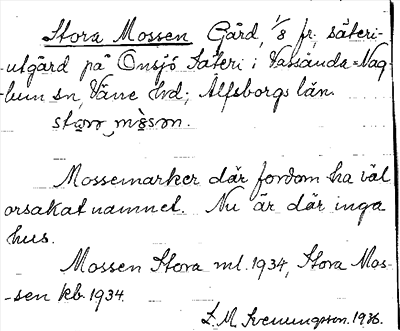 Stora Mossen Gård, 1/8 fr. säteri-
-utgård på Onsjö Säteri i Vassända=Nag
-lum sn, Väne hd; Älfsborgs län.
Mossemarker där fordom ha väl
orsakat namnet. Nu är där inga
hus.
Mossen Stora ml. 1934, Stora Mos-
-sen kb. 1934.
L. M. Svenungsson. 1936.